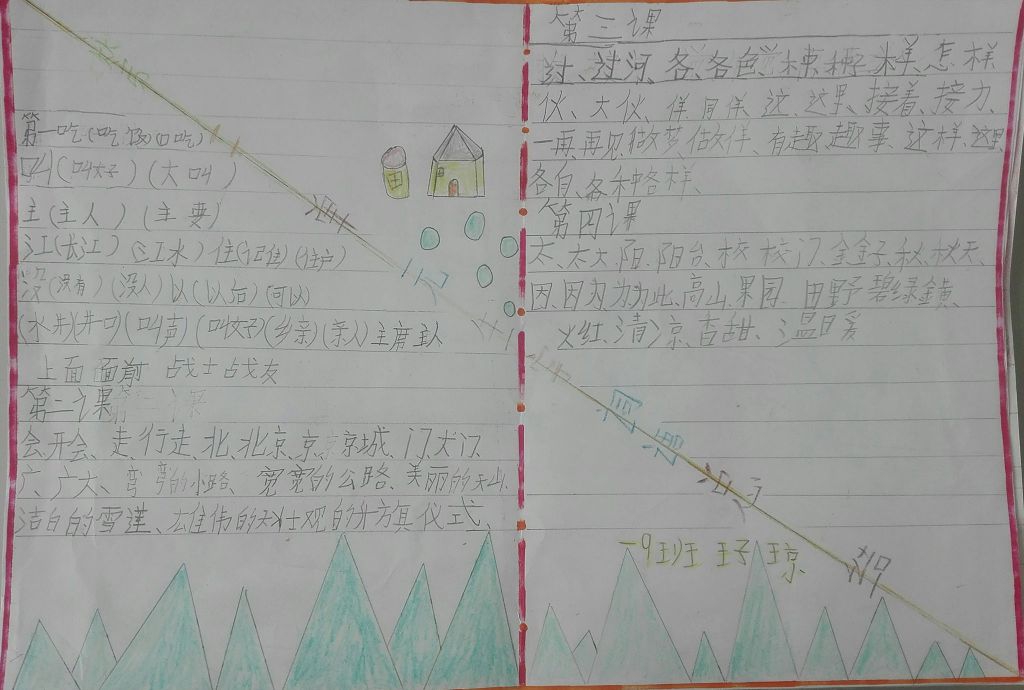 第一吃(吃饭)(口吃)
叫(叫太子)(大叫)
主(主人)(主要)
江(长江)(江水)住(记住)(住户)
没(没有)(没人)以(以后)(可以)
(水井)(井口)(叫声)(叫女子)(乡亲)(亲人)主席主人
上面 面前 战士战友
第二课
会、开会、走、行走、北、北京、京、京城、门、大门
广、广大、弯弯的小路、宽宽的公路、美丽的天山、
洁白的雪莲、雄伟的天壮观的升旗仪式、
第三课
过、过河、各、各色、种、种子、样、怎样
伙、大伙、伴、同伴、这、这里、接着、接力、
一再、再见、做梦、做伴、有趣、趣事、这样、这里
各自、各种各样、
第四课
太、太太、阳、阳台、校、校门、金、金子、秋、秋天、
因、因为、为、为此、高山、果园、田野、碧绿、
火红、清凉、香甜、温暖
一9班 王子琼